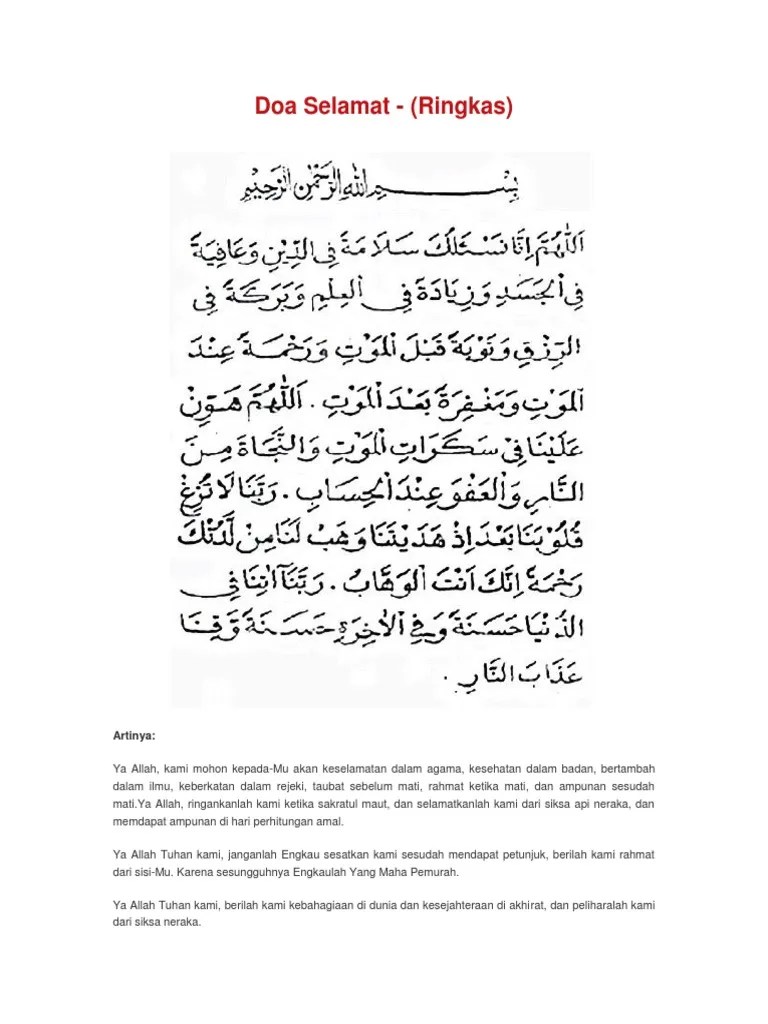 Doa Selamat - (Ringkas)
بِسْــــــــمِ اللهِ الرَّحْمٰنِ الرَّحِيْمِ
اَللّٰهُمَّ اِنَّا نَسْئَلُكَ سَلَامَةً فِى الدِّيْنِ وَعَافِيَةً
فِى الْجَسَدِ وَزِيَادَةً فِى الْعِلْمِ وَبَرَكَةً فِى
الرِّزْقِ وَتَوْبَةً قَبْلَ الْمَوْتِ وَرَحْمَةً عِنْدَ
الْمَوْتِ وَمَغْفِرَةً بَعْدَ الْمَوْتِ. اَللّٰهُمَّ هَوِّنْ
عَلَيْنَا فِىْ سَكَرَاتِ الْمَوْتِ وَالنَّجَاةَ مِنَ
النَّارِ وَالْعَفْوَ عِنْدَ الْحِسَابِ. رَبَّنَا لَا تُزِغْ
قُلُوْبَنَا بَعْدَ اِذْ هَدَيْتَنَا وَهَبْ لَنَا مِنْ لَّدُنْكَ
رَحْمَةً اِنَّكَ اَنْتَ الْوَهَّابُ. رَبَّنَآ اٰتِنَا فِى
الدُّنْيَا حَسَنَةً وَفِى الْاٰخِرَةِ حَسَنَةً وَّقِنَا
عَذَابَ النَّارِ.
Artinya:
Ya Allah, kami mohon kepada-Mu akan keselamatan dalam agama, kesehatan dalam badan, bertambah
dalam ilmu, keberkatan dalam rejeki, taubat sebelum mati, rahmat ketika mati, dan ampunan sesudah
mati.Ya Allah, ringankanlah kami ketika sakratul maut, dan selamatkanlah kami dari siksa api neraka, dan
memdapat ampunan di hari perhitungan amal.
Ya Allah Tuhan kami, janganlah Engkau sesatkan kami sesudah mendapat petunjuk, berilah kami rahmat
dari sisi-Mu. Karena sesungguhnya Engkaulah Yang Maha Pemurah.
Ya Allah Tuhan kami, berilah kami kebahagiaan di dunia dan kesejahteraan di akhirat, dan peliharalah kami
dari siksa neraka.